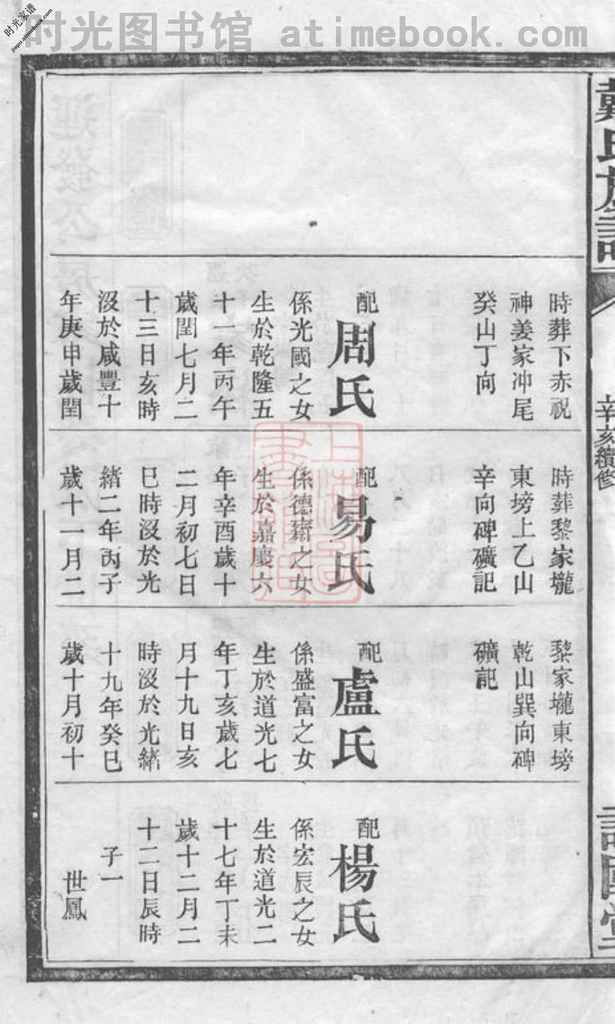 时光家谱
www.atimebook.com
时光图书馆 atimebook.com
戴氏族譜
辛亥續修
時葬下赤祝
神姜家冲尾
癸山丁向
配周氏
係光國之女
生於乾隆五
十一年丙午
歲閏七月二
十三日亥時
沒於咸豐十
年庚申歲閏
時葬黎家壠
東塝上乙山
辛向碑礦記
配易氏
係德齋之女
生於嘉慶六
年辛酉歲十
二月初七日
巳時沒於光
緒二年丙子
歲十一月二
黎家壠東塝
乾山巽向碑
礦記
配盧氏
係盛富之女
生於道光七
年丁亥歲七
月十九日亥
時沒於光緒
十九年癸巳
歲十月初十
配楊氏
係宏辰之女
生於道光二
十七年丁未
歲十二月二
十二日辰時
子一
世鳳